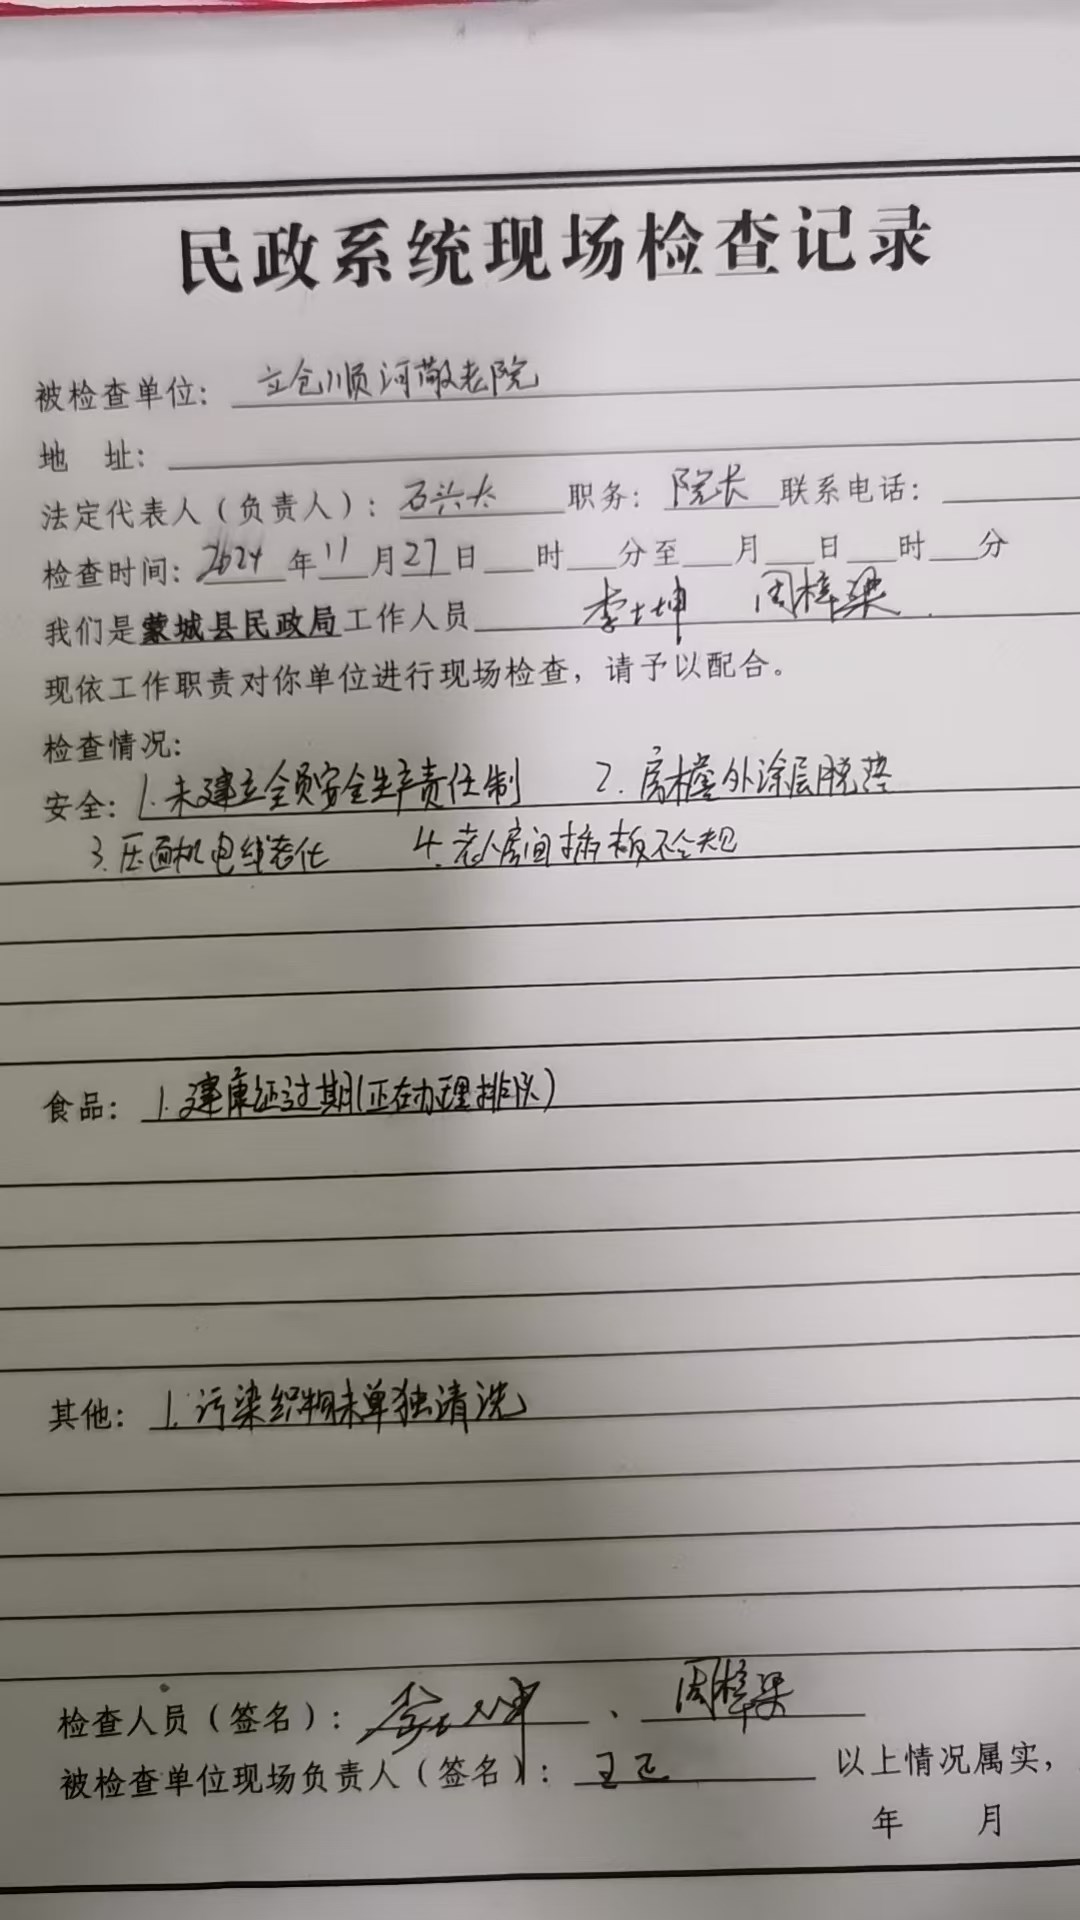 民政系统现场检查记录
被检查单位: 立仓顺河敬老院
地 址:
法定代表人(负责人): 石兴太 职务: 院长 联系电话:
检查时间: 2024年11月27日 时 分至 月 日 时 分
我们是蒙城县民政局工作人员 李士坤 周梓梁
现依工作职责对你单位进行现场检查, 请予以配合。
检查情况:
安全: 1.未建立全员安全生产责任制 2.房檐外涂层脱落
3.压面机电线老化 4.老人房间插板不合规
食品: 1.建康证过期(正在办理排队)
其他: 1.污染织物未单独清洗
检查人员(签名): 李士坤 、 周梓梁
被检查单位现场负责人(签名): 以上情况属实,
年 月